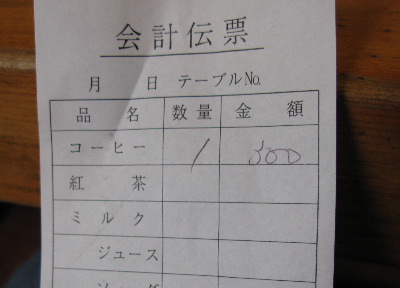 会計伝票
月 日 テーブル№
品名 数量 金額
コーヒー 1 300
紅茶
ミルク
ジュース